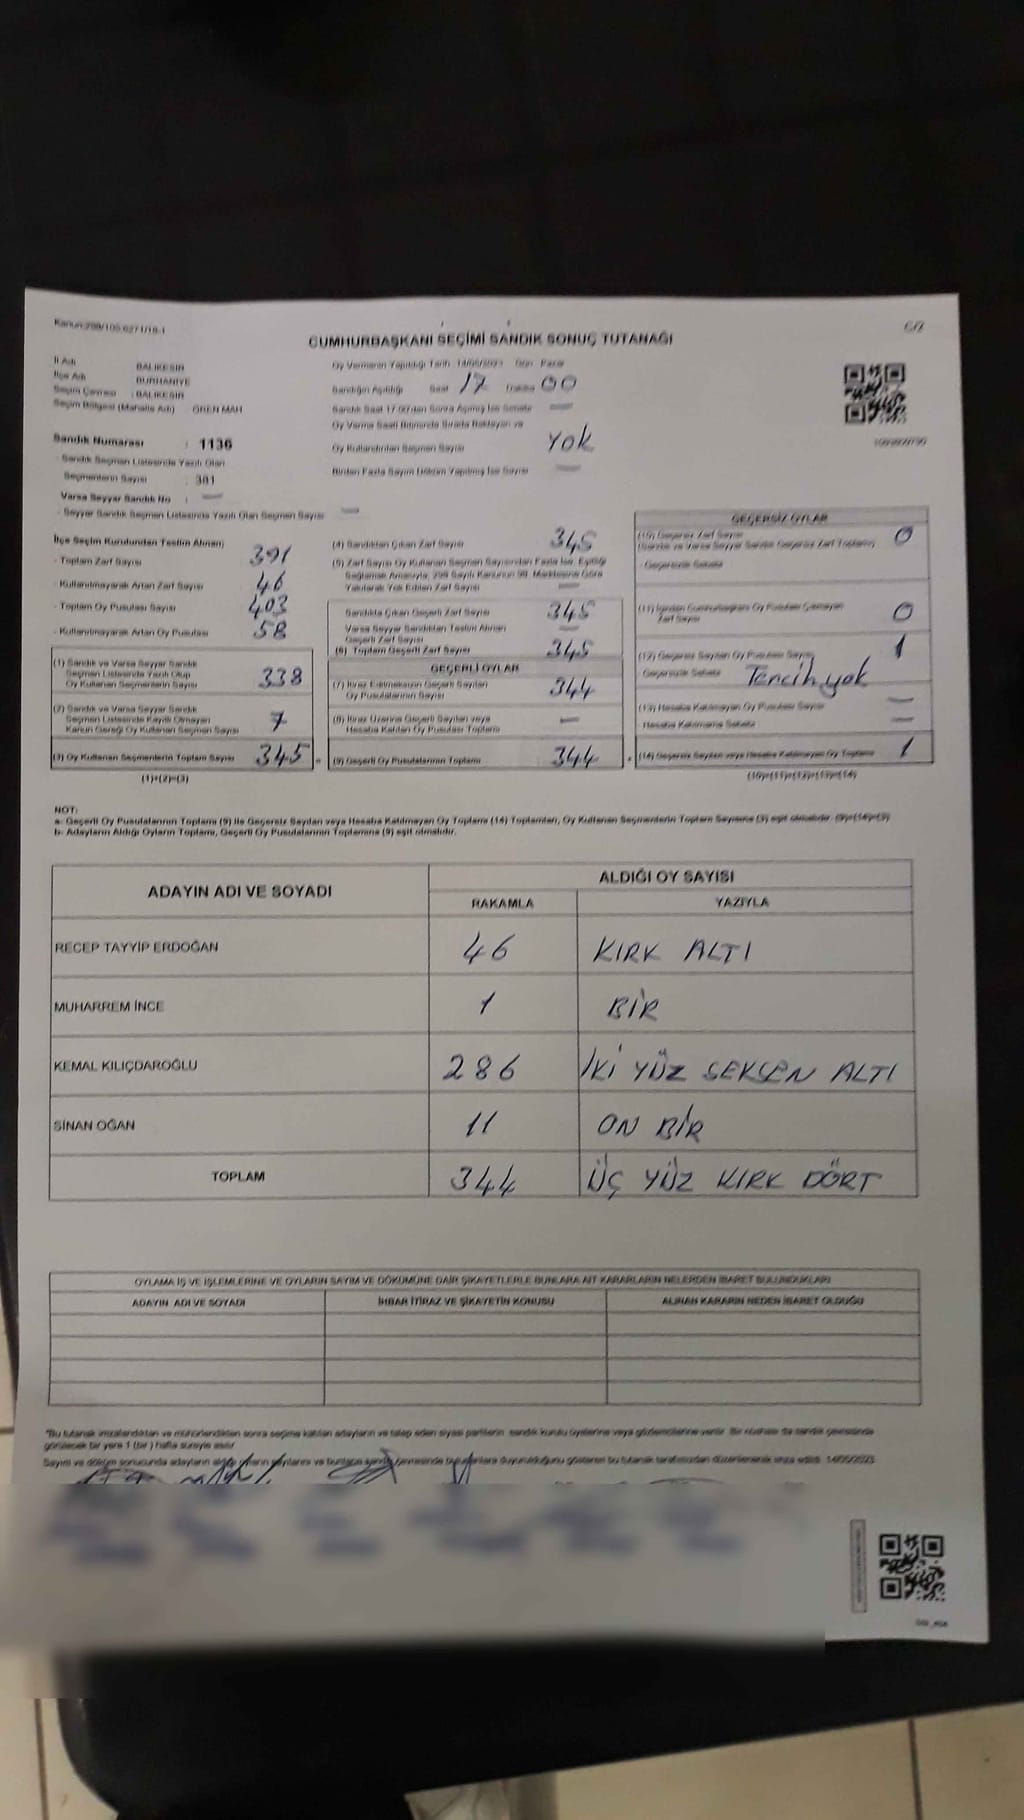 Kanun:298/105.6271/18-1
C/2
CUMHURBAŞKANI SEÇİMİ SANDIK SONUÇ TUTANAĞI
İl Adı BALIKESİR
İlçe Adı BURHANİYE
Seçim Çevresi : BALIKESİR
Seçim Bölgesi (Mahalle Adı) ÖREN MAH
Sandık Numarası : 1136
- Sandık Seçmen Listesinde Yazılı Olan
Seçmenlerin Sayısı : 381
Varsa Seyyar Sandık No : —
- Seyyar Sandık Seçmen Listesinde Yazılı Olan Seçmen Sayısı —
Oy Vermenin Yapıldığı Tarih 14/05/2023 Gün Pazar
Sandığın Açıldığı Saat 17 Dakika 00
Sandık Saat 17.00'dan Sonra Açılmış İse Sebebi —
Oy Verme Saati Bitiminde Sırada Bekleyen ve
Oy Kullandırılan Seçmen Sayısı YOK
Birden Fazla Sayım Döküm Yapılmış İse Sayısı —
İlçe Seçim Kurulundan Teslim Alınan;
- Toplam Zarf Sayısı 391
- Kullanılmayarak Artan Zarf Sayısı 46
- Toplam Oy Pusulası Sayısı 403
- Kullanılmayarak Artan Oy Pusulası 58
(1) Sandık ve Varsa Seyyar Sandık
Seçmen Listesinde Yazılı Olup
Oy Kullanan Seçmenlerin Sayısı 338
(2) Sandık ve Varsa Seyyar Sandık
Seçmen Listesinde Kayıtlı Olmayan
Kanun Gereği Oy Kullanan Seçmen Sayısı 7
(3) Oy Kullanan Seçmenlerin Toplam Sayısı 345
(1)+(2)=(3)
(4) Sandıktan Çıkan Zarf Sayısı 345
(5) Zarf Sayısı Oy Kullanan Seçmen Sayısından Fazla İse, Eşitliği
Sağlamak Amacıyla, 298 Sayılı Kanunun 98. Maddesine Göre
Yakılarak Yok Edilen Zarf Sayısı —
Sandıkta Çıkan Geçerli Zarf Sayısı 345
Varsa Seyyar Sandıktan Teslim Alınan
Geçerli Zarf Sayısı —
(6) Toplam Geçerli Zarf Sayısı 345
GEÇERLİ OYLAR
(7) İtiraz Edilmeksizin Geçerli Sayılan
Oy Pusulalarının Sayısı 344
(8) İtiraz Üzerine Geçerli Sayılan veya
Hesaba Katılan Oy Pusulası Toplamı —
(9) Geçerli Oy Pusulalarının Toplamı 344
GEÇERSİZ OYLAR
(10) Geçersiz Zarf Sayısı 0
(Sandık ve Varsa Seyyar Sandık Geçersiz Zarf Toplamı)
- Geçersizlik Sebebi
(11) İçinden Cumhurbaşkanı Oy Pusulası Çıkmayan
Zarf Sayısı 0
(12) Geçersiz Sayılan Oy Pusulası Sayısı 1
Geçersizlik Sebebi Tercih yok
(13) Hesaba Katılmayan Oy Pusulası Sayısı —
- Hesaba Katılmama Sebebi —
(14) Geçersiz Sayılan veya Hesaba Katılmayan Oy Toplamı 1
(10)+(11)+(12)+(13)=(14)
NOT:
a- Geçerli Oy Pusulaları Toplamı (9) ile Geçersiz Sayılan veya Hesaba Katılmayan Oy Toplamı (14) Toplamları, Oy Kullanan Seçmenlerin Toplam Sayısına (3) eşit olmalıdır. (9)+(14)=(3)
b- Adayların Aldığı Oyların Toplamı, Geçerli Oy Pusulalarının Toplamına (9) eşit olmalıdır.
ADAYIN ADI VE SOYADI ALDIĞI OY SAYISI
RAKAMLA YAZIYLA
RECEP TAYYİP ERDOĞAN 46 KIRK ALTI
MUHARREM İNCE 1 BİR
KEMAL KILIÇDAROĞLU 286 İKİ YÜZ SEKSEN ALTI
SİNAN OĞAN 11 ON BİR
TOPLAM 344 ÜÇ YÜZ KIRK DÖRT
OYLAMA İŞ VE İŞLEMLERİNE VE OYLARIN SAYIM VE DÖKÜMÜNE DAİR ŞİKAYETLERLE BUNLARA AİT KARARLARIN NELERDEN İBARET BULUNDUKLARI
ADAYIN ADI VE SOYADI İHBAR İTİRAZ VE ŞİKAYETİN KONUSU ALINAN KARARIN NEDEN İBARET OLDUĞU
"Bu tutanak imzalandıktan ve mühürlendikten sonra seçime katılan adayların ve talep eden siyasi partilerin sandık kurulu üyelerine veya gözlemcilerine verilir. Bir nüshası da sandık çevresinde
görülecek bir yere 1 (bir) hafta süreyle asılır
Sayım ve döküm sonucunda adayların aldığı oyların sayılarını ve bunların sandık çevresinde bulunanlara duyurulduğunu gösteren bu tutanak tarafımızdan düzenlenerek imza edildi. 14/05/2023